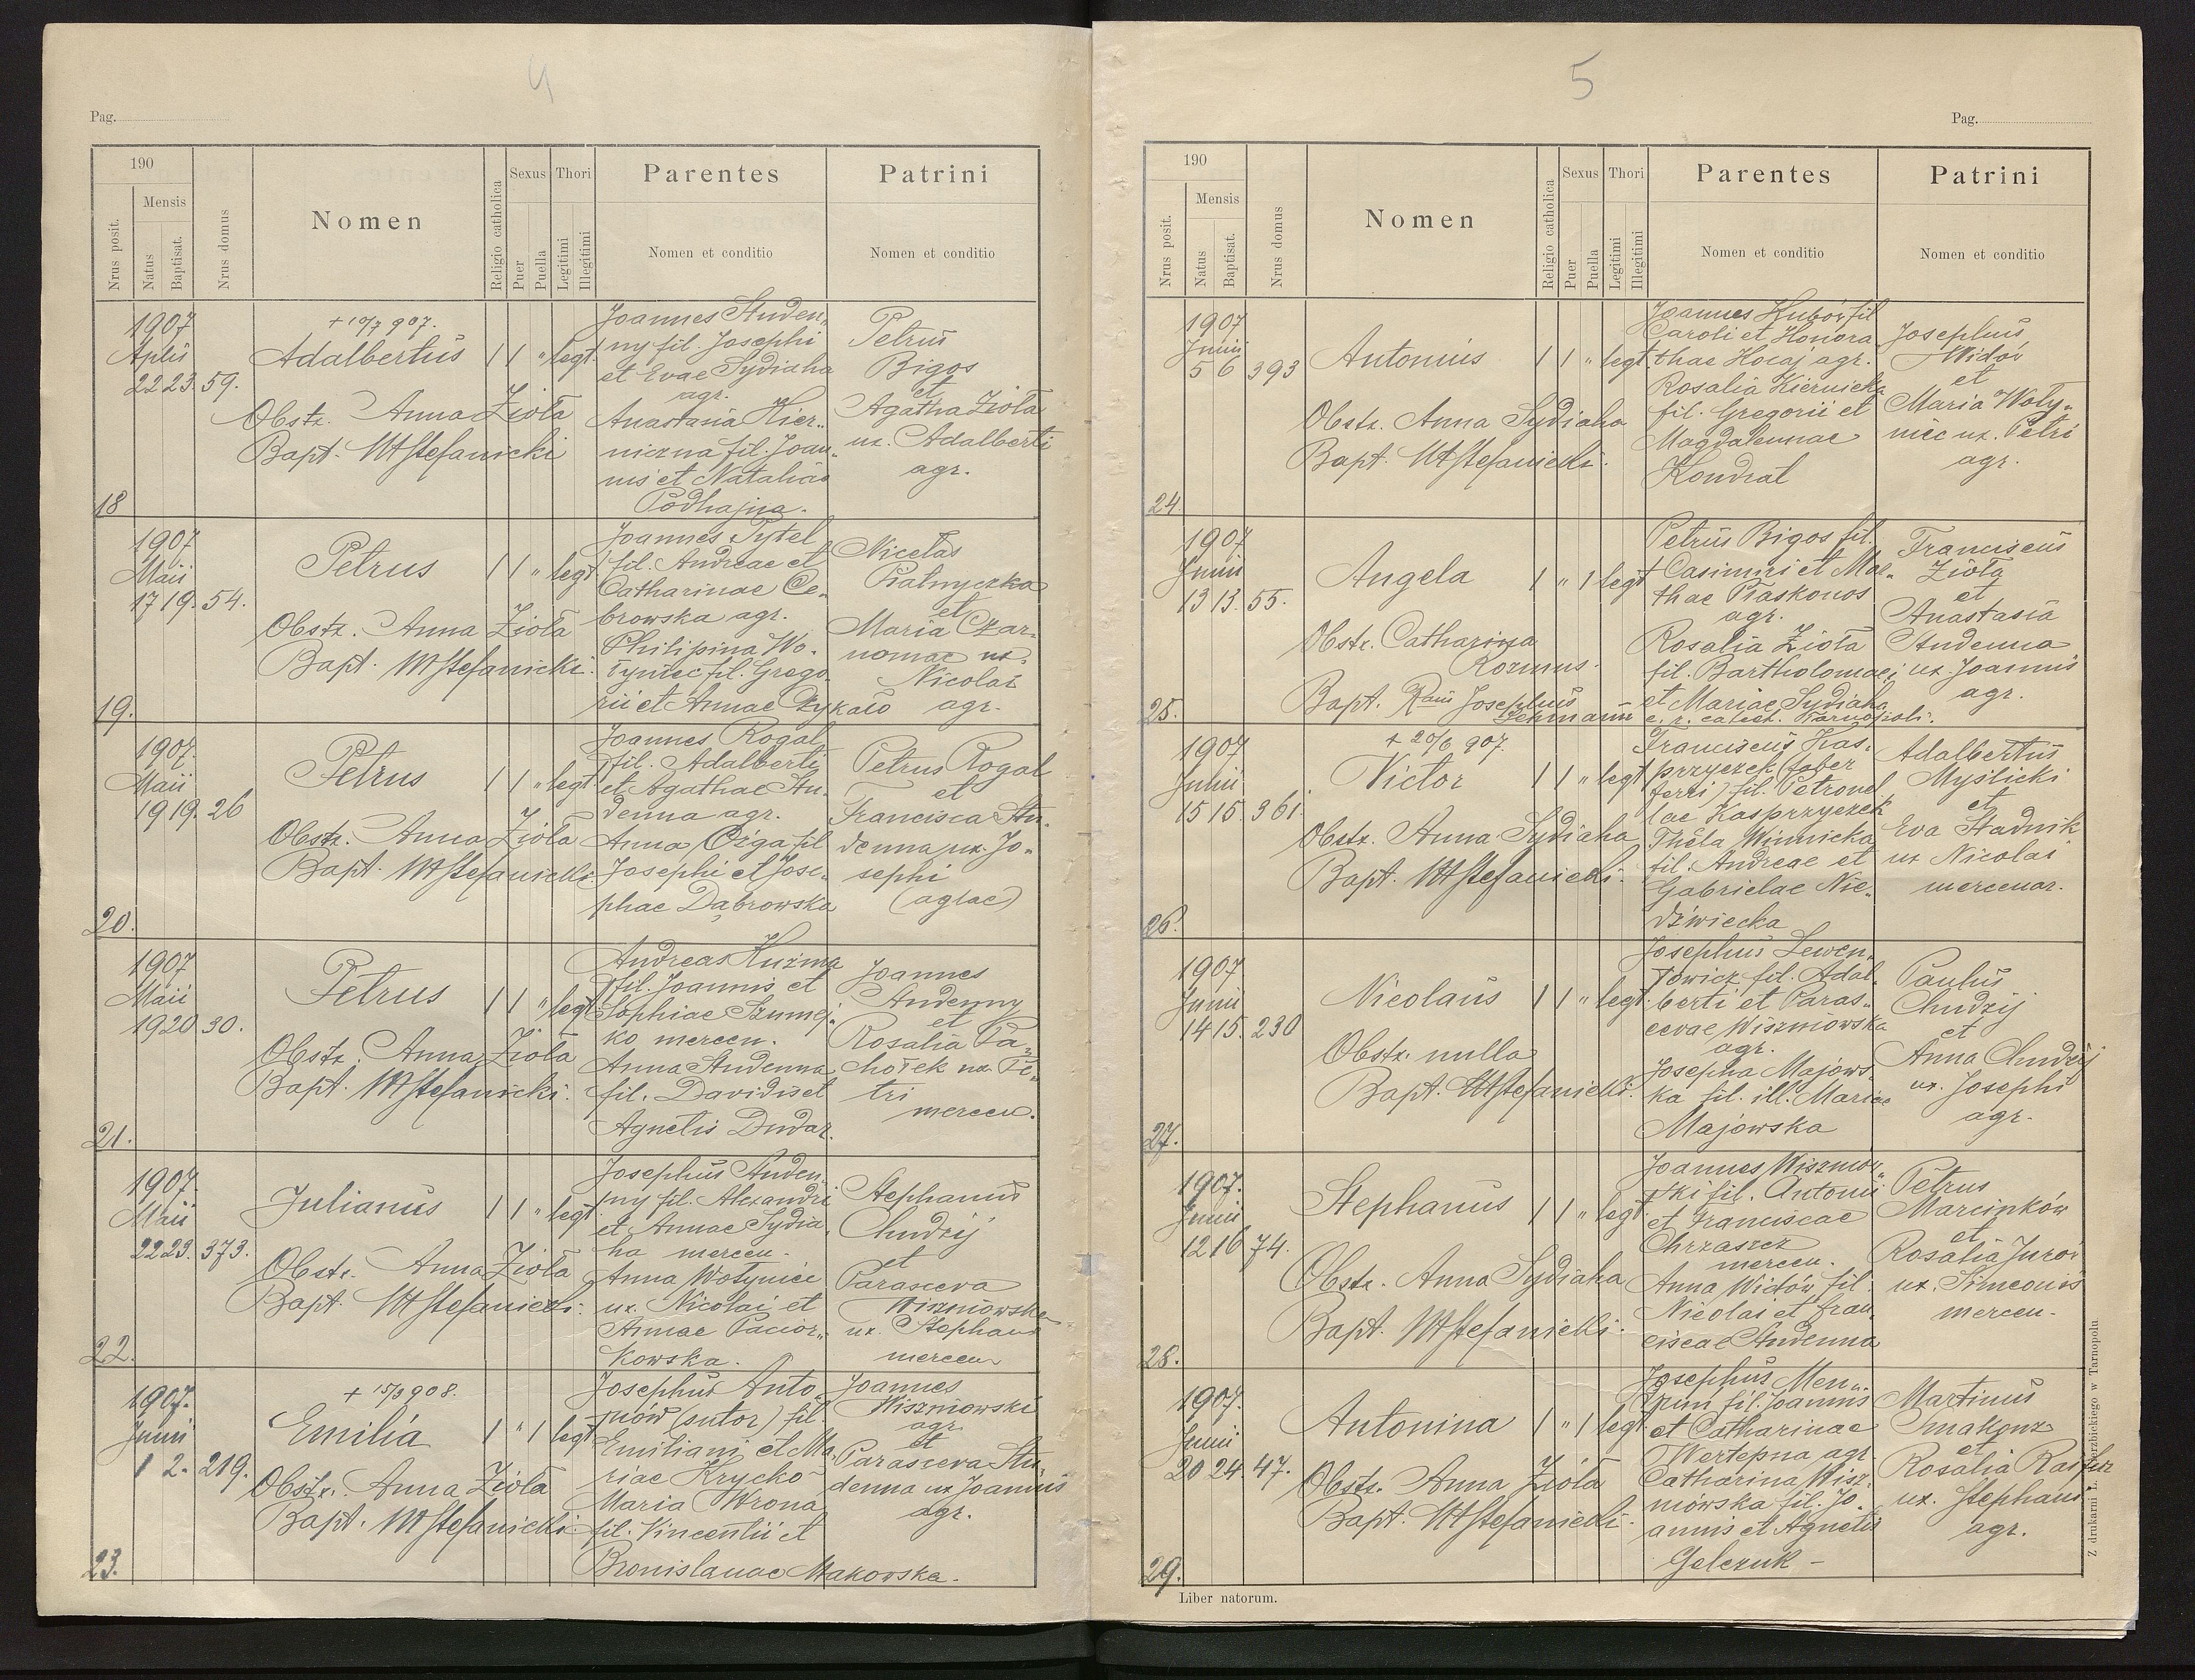 4
Pag.
190
Nrus posit.
Mensis
Natus
Baptisat.
Nrus domus
Nomen
Religio catholica
Sexus
Puer
Puella
Thori
Legitimi
Illegitimi
Parentes
Nomen et conditio
Patrini
Nomen et conditio
18
1907
Aplis
22 23. 59.
+ 10/7 907.
Adalbertus
1 1 " legt.
Obstz. Anna Zioła
Bapt. WStefanicki
Joannes Studen„
ny fil. Josephi
et Evae Sydiaha
agr.
Anastasia Kier„
niczna fil. Joan„
nis et Nataliae
Podhajna.
Petrus
Bigos
et
Agatha Zioła
ux. Adalberti
agr.
19.
1907
Maii
17 19. 54.
Petrus
1 1 " legt
Obstz. Anna Zioła
Bapt. WStefanicki.
Joannes Tytel
fil. Andreae et
Catharinae Ce„
browska agr.
Philipina Wo„
łyniec fil. Grego„
rii et Annae Dzykało
Nicetas
Piatnyczka
et
Maria Czar„
nomac ux.
Nicolai
agr.
20.
1907.
Maii
19 19. 26
Petrus
1 1 " legt
Obstz. Anna Zioła
Bapt. WStefanicki.
Joannes Rogal
fil. Adalberti
et Agathae Stu„
denna agr.
Anna Ożga fil
Josephi et Jose„
phae Dąbrowska
Petrus Rogal
et
Francisca Stu„
denna ux. Jo„
sephi
(aglae)
21.
1907
Maii
19 20 30.
Petrus
1 1 " legt
Obstz. Anna Zioła
Bapt. WStefanicki.
Andreas Kuzma
fil. Joannis et
Sophiae Szumej„
ko mercen.
Anna Studenna
fil. Davidis et
Agnetis Dudar.
Joannes
Studenny
et
Rosalia Pa„
chołek ux. Pe„
tri
mercen.
22.
1907.
Maii
22 23. 373.
Julianus
1 1 " legt
Obstz. Anna Zioła
Bapt. WStefanicki.
Josephus Studen„
ny fil. Alexandri
et Annae Sydia„
ha mercen.
Anna Wołyniec
ux. Nicolai et
Annae Pacior„
kowska.
Stephanus
Chudzij
et
Parasceva
Wiszniowska
ux. Stephani
mercen
23.
1907.
Junii
1 2. 219.
+ 15/3 908.
Emilia
1 " 1 legt
Obstz. Anna Zioła
Bapt. WStefanicki
Josephus Anto„
niów (sutor) fil.
Emiliani et Ma„
riae Krycko
Maria Wrona
fil. Vincentii et
Bronislauae Makowska.
Joannes
Wiszniowski
agr.
et
Parasceva Stu„
denna ux Joannis
agr.
5
Pag.
190
Nrus posit.
Mensis
Natus
Baptisat.
Nrus domus
Nomen
Religio catholica
Sexus
Puer
Puella
Thori
Legitimi
Illegitimi
Parentes
Nomen et conditio
Patrini
Nomen et conditio
24.
1907
Junii
5 6 393
Antonius
1 1 " legt.
Obstz. Anna Sydiaha
Bapt. WStefanicki.
Joannes Kubów fil
Caroli et Honora„
thae Hocaj agr.
Rosalia Kiernicka
fil. Gregorii et
Magdalennae
Kondrat
Josephus
Widór
et
Maria Woły„
niec ux. Petri
agr.
25.
1907
Junii
13 13. 55.
Angela
1 " 1 legt
Obstz. Catharina
Rozmus.
Bapt. Rdus Josephus
Zehmann c. r. catech. Tarnopoli.
Petrus Bigos fil.
Casimiri et Mar„
thae Piaskonos
agr.
Rosalia Zioła
fil. Bartholomaei
et Mariae Sydiaha
Franciscus
Zioła
et
Anastasia
Studenna
ux Joannis
agr.
26.
1907
Junii
15 15. 361.
+ 20/6 907.
Victor
1 1 " legt
Obstz. Anna Sydiaha
Bapt. WStefanicki.
Franciscus Kas„
przyczek (faber
ferri) fil. Petronel„
lae Kasprzyczek
Thela Winnicka
fil. Andreae et
Gabrielae Nie„
dźwiecka
Adalbertus
Myślicki
et
Eva Stadnik
ux Nicolai
mercenar.
27.
1907
Junii
14 15. 230
Nicolaus
1 1 " legt.
Obstz. nulla
Bapt. WStefanicki.
Josephus Lewen„
towicz fil. Adal„
berti et Paras„
cevae Wiszniowska
agr.
Josepha Majows„
ka fil. ill. Mariae
Majowska
Paulus
Chudzij
et
Anna Chudzij
ux. Josephi
agr.
28.
1907.
Junii
12 16 74.
Stephanus
1 1 " legt.
Obstz. Anna Sydiaha
Bapt. WStefanicki.
Joannes Wisznio„
ski fil. Antonii
et Franciscae
Chrzaszcz
mercen.
Anna Widów fil
Nicolai et Fran„
ciscae Studenna
Petrus
Marcinków
et
Rosalia Juror
ux. Simeonis
mercen.
29.
1907.
Junii
20 24. 47.
Antonina
1 " 1 legt
Obstz. Anna Zioła
Bapt. WStefanicki.
Josephus Men„
fil. Joannis
et Catharinae
Wertepna agr
Catharina Wisz„
niówska fil. Jo„
annis et Agnetis
Gelczuk -
Martinus
et
Rosalia
ux. Stephani
agr.
Liber natorum.
Z drukarni L. Wierzbickiego w Tarnopolu